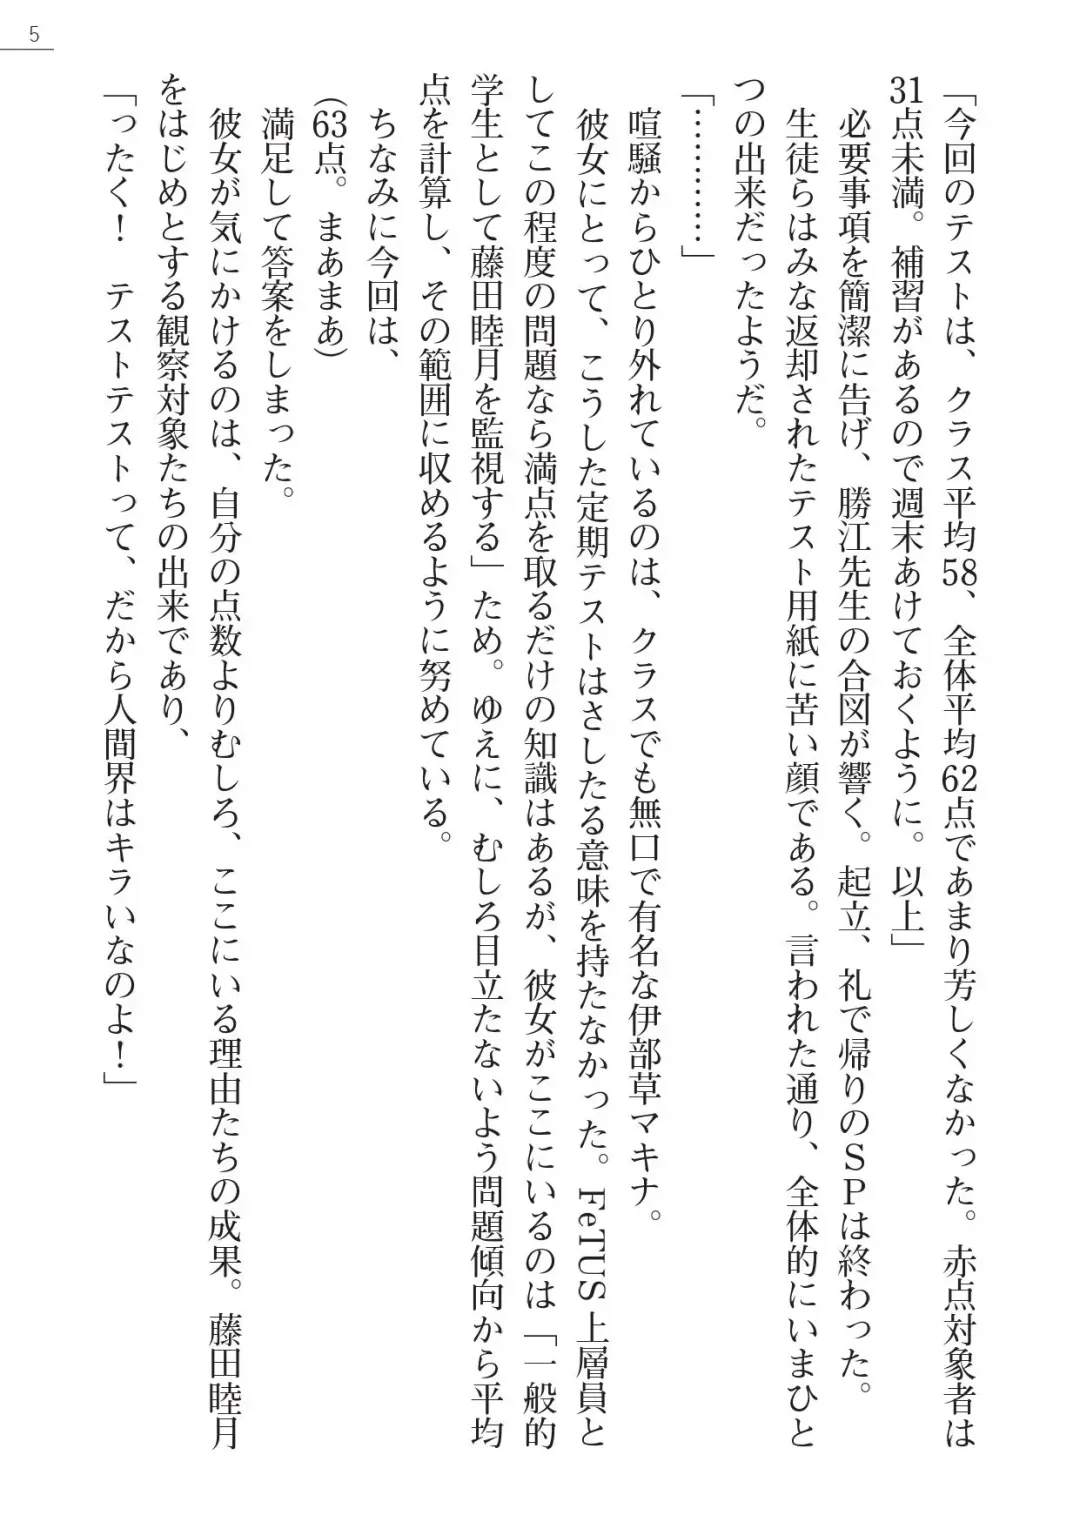 5
「今回のテストは、クラス平均58、全体平均62点であまり芳しくなかった。赤点対象者は
31点未満。補習があるので週末あけておくように。以上」
必要事項を簡潔に告げ、勝江先生の合図が響く。起立、礼で帰りのＳＰは終わった。
生徒らはみな返却されたテスト用紙に苦い顔である。言われた通り、全体的にいまひと
つの出来だったようだ。
「…………」
喧騒からひとり外れているのは、クラスでも無口で有名な伊部草マキナ。
彼女にとって、こうした定期テストはさしたる意味を持たなかった。FeTUS上層員と
してこの程度の問題なら満点を取るだけの知識はあるが、彼女がここにいるのは「一般的
学生として藤田睦月を監視する」ため。ゆえに、むしろ目立たないよう問題傾向から平均
点を計算し、その範囲に収めるように努めている。
ちなみに今回は、
（63点。まあまあ）
満足して答案をしまった。
彼女が気にかけるのは、自分の点数よりむしろ、ここにいる理由たちの成果。藤田睦月
をはじめとする観察対象たちの出来であり、
「ったく！　テストテストって、だから人間界はキラいなのよ！」